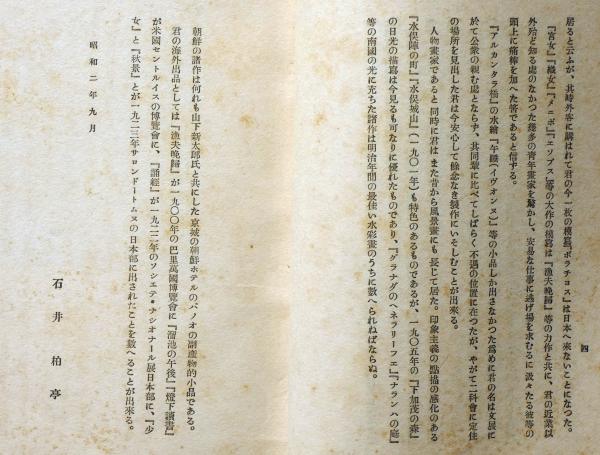 四
居ると云ふが、其時外客に購はれて君の今一枚の模寫『ボラチヨス』は日本へ來ないことになつた。
『宮女』『織女』『メニポ』『エソプス』等の大作の模寫は『漁夫晩歸』等の力作と共に、君の近業以
外殆ど知る處のなかつた幾多の青年畫家を驚かし、安易な仕事に逃げ場を求むるに汲々たる彼等の
頭上に痛棒を加へた筈であると信ずる。
『アルカンタラ橋』の水繪『午餐(イヴオンヌ)』等の小品しか出さなかつた爲めに君の名は文展に
於て公衆の親む處とならず、其同輩に比べてしばらく不遇の位置に在つたが、やがて二科會に定住
の場所を見出した君は今安心して餘念なき製作にいそしむことが出來る。
人物畫家であると同時に君はまた昔から風景畫にも長じて居た。印象主義の點描の感化のある
『水俣陣の町』『水俣城山』(一九〇一年)も特色のあるものであるが、一九〇五年の『下加茂の森』
の日光の描寫は今見るも可なりに優れたものであり、『グラナダのヘネラリーフエ』『ナランハの庭』
等の南國の光に充ちた諸作は明治年間の最佳い水彩畫のうちに數へられねばならぬ。
朝鮮の諸作は何れも山下新太郎氏と共にした京城の朝鮮ホテルのパノオの副產物的小品である。
君の海外出品としては『漁夫晩歸』が一九〇〇年の巴里萬國博覽會に『溜池の午後』『燈下讀書』
が米國セントルイスの博覽會に、『誦經』が一九二二年のソシエテ・ナシオナール展日本部に、『少
女』と『秋景』とが一九二三年サロンドートムヌの日本部に出されたことを數へることが出來る。
昭和二年九月
石井柏亭